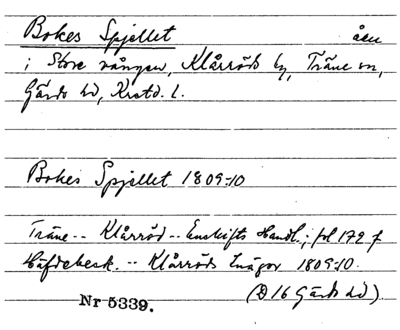 Bokes Spjellet åen
i Store vången, Klårröds by, Träne sn,
Gärds hd, Krstd. l.
Bokes Spjellet 1809-10
Träne -- Klårröd -- Enskifts Handl.; fol 172 f
Häfdebesk. -- Klårröds Inägor 1809-10.
(D 16 Gärds hd).
Nr 5339.